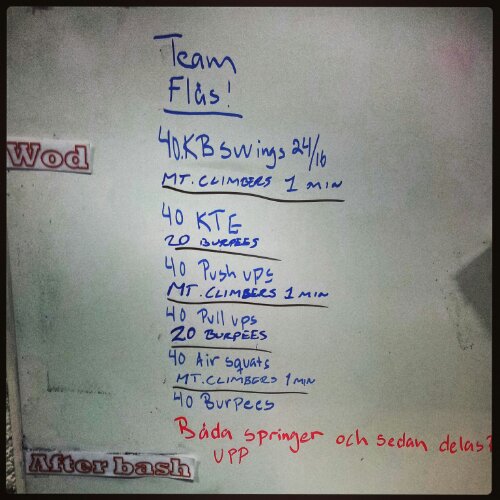 Team
Flås!
40.KB swings 24/16
Wod
MT. CLIMBERS 1 MIN
40 KTE
20 BURPEES
40 Push ups
MT. CLIMBERS 1 MIN
40 Pull ups
20 BURPEES
40 Air squats
MT. CLIMBERS 1 MIN
40 Burpees
Båda springer och sedan delas
UPP
After bash